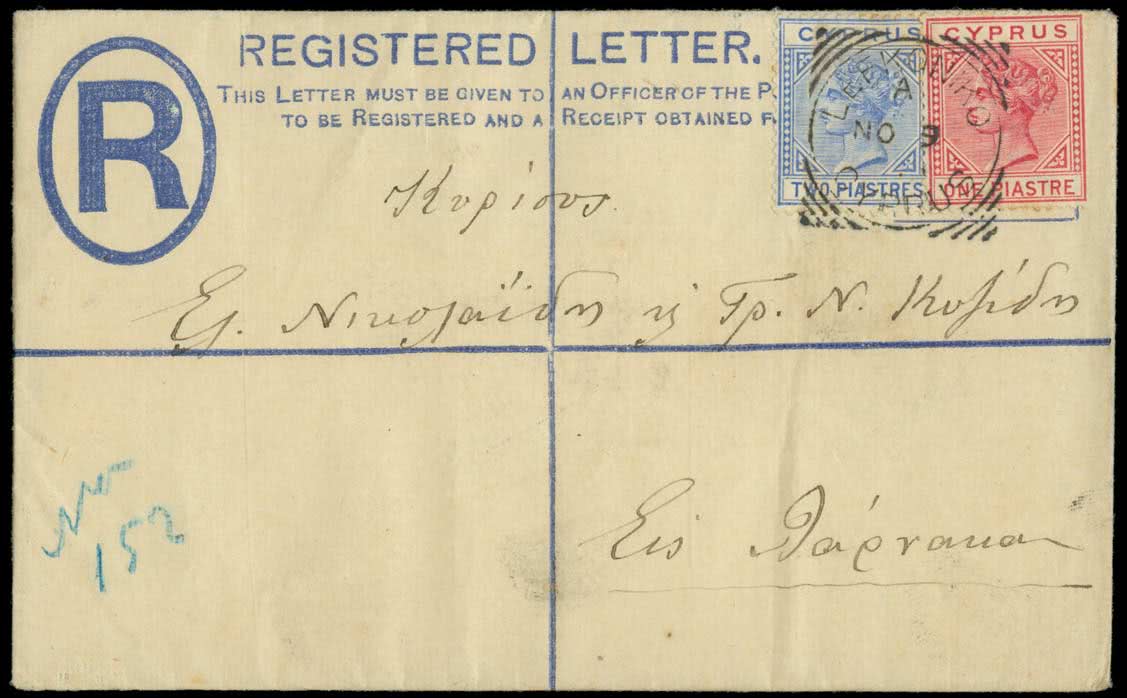 R
REGISTERED LETTER.
THIS LETTER MUST BE GIVEN TO AN OFFICER OF THE P
TO BE REGISTERED AND A RECEIPT OBTAINED F
CYPRUS
TWO PIASTRES
CYPRUS
ONE PIASTRE
LEFKONIKO
A
NO 9
CYPRUS
Κυρίους
Ελ. Νικολαΐδη ϗ Γρ. Ν.
Εἰς Λάρνακα
No
152